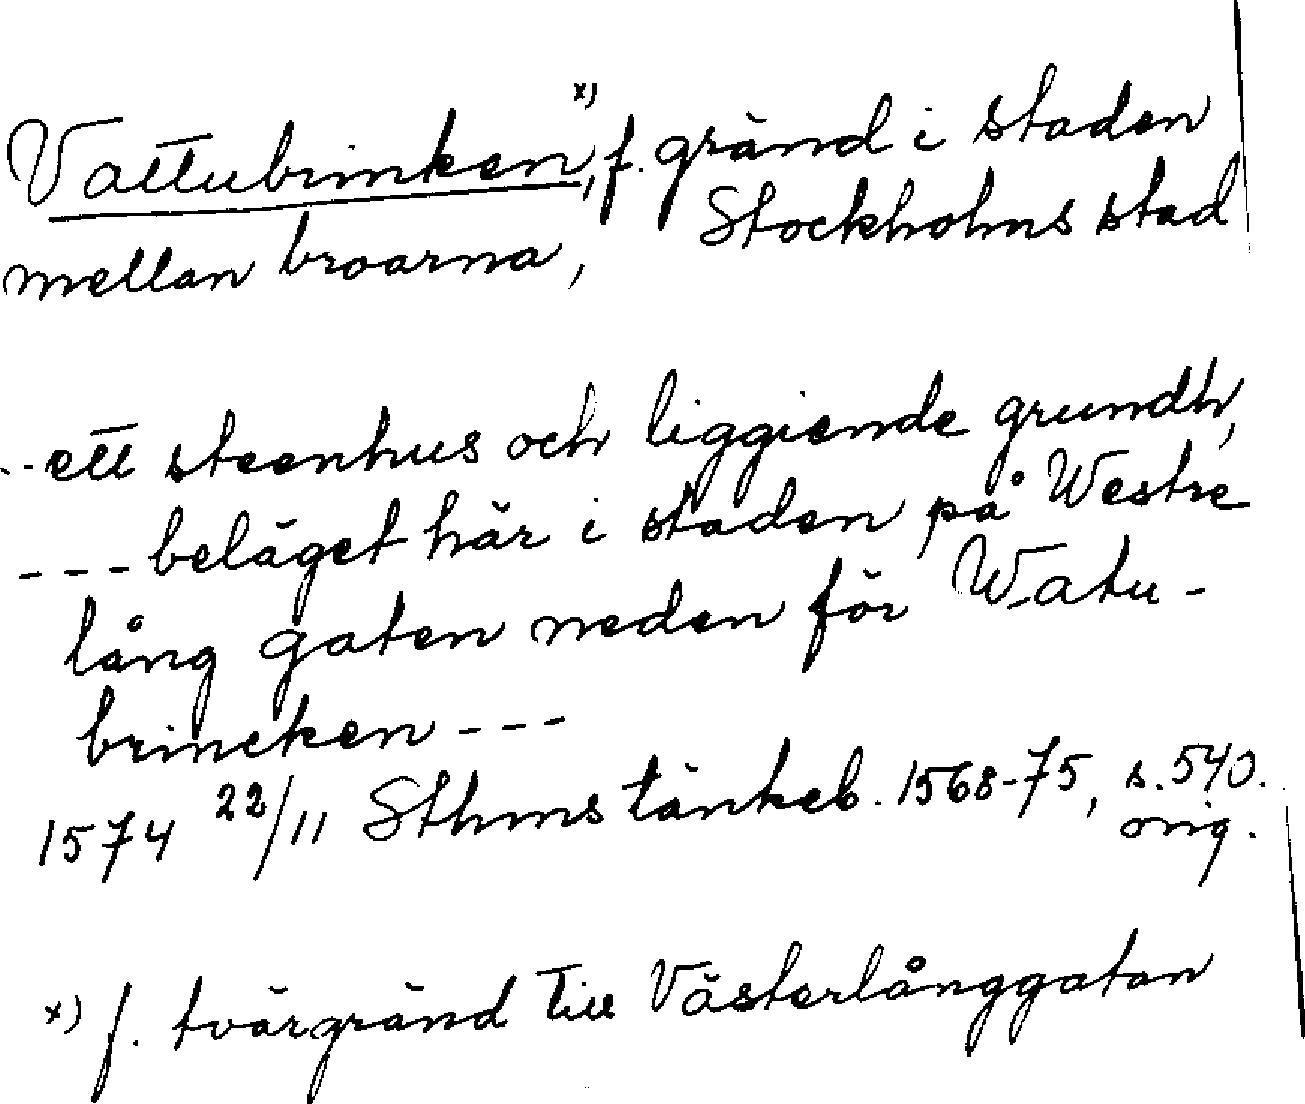 Vattubrinken, x) f. gränd i staden
mellan broarna, Stockholms stad
.. ett steenhus och liggiende grundh,
--- beläget här i staden på Westre
lång gaten neden för Watu-
brincken ---
1574 22/11 Sthms tänkeb. 1568-75, s. 540.
orig.
x) f. tvärgränd till Västerlånggatan